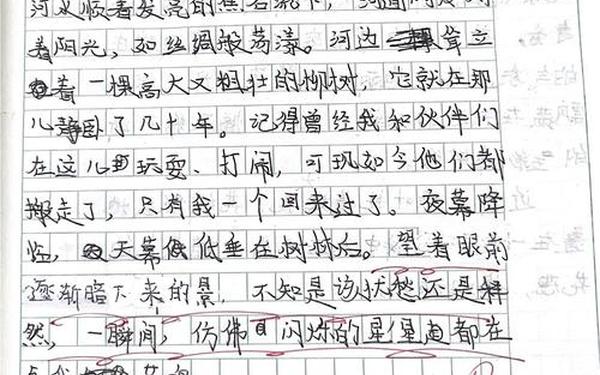 河水顺着发亮的焦石流下，河面闪
着阳光，如丝绸般荡漾。河边耸立
着一棵高大又粗壮的柳树，它就在那
儿静卧了几十年。记得曾经我和伙伴们
在这儿玩耍、打闹，可现如今他们都
搬走了，只有我一个回来过了。夜幕降
临，天幕低垂在树林后。望着眼前
逐渐暗下来的景，不知是该忧愁还是释
然，一瞬间，仿佛闪烁的星星都在